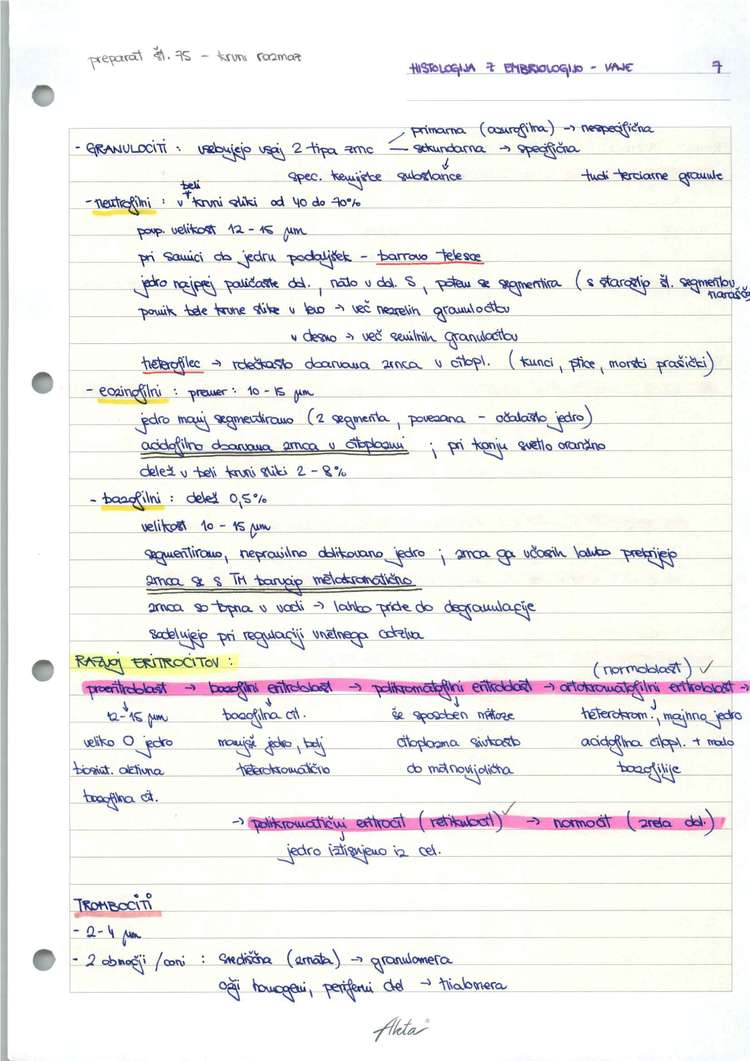 preparat št. 75 - krvni razmaz
HISTOLOGIJA Z EMBRIOLOGIJO - VAJE 7
- GRANULOCITI : vsebujejo vsaj 2 tipa zrnc
primarna (azurofilna) → nespecifična
sekundarna → specifična
spec. kemijske substance tudi terciarne granule
- neutrofilni : v beli krvni sliki od 40 do 70%
povp. velikost 12 - 15 µm
pri samici do jedru podaljšek - barrovo telesce
jedro najprej paličaste obl., nato v obl. S, potem se segmentira (s starostjo št. segmentov narašča
pomik bele krvne slike v levo → več nezrelih granulocitov
v desno → več senilnih granulocitov
heterofilec → rdečkasto obarvana zrnca v citopl. (kunci, ptice, morski prašički)
- eozinofilni : premer: 10 - 15 µm
jedro manj segmentirano (2 segmenta, povezana - očalasto jedro)
acidofilno obarvana zrnca v citoplazmi ; pri konju svetlo oranžno
delež v beli krvni sliki 2 - 8%
- bazofilni : delež 0,5%
velikost 10 - 15 µm
segmentirano, nepravilno oblikovano jedro ; zrnca ga včasih lahko prekrijejo
zrnca se s TM barvajo metakromatično
zrnca so topna v vodi → lahko pride do degranulacije
sodelujejo pri regulaciji vnetnega odziva
RAZVOJ ERITROCITOV :
(normoblast) ✓
proeritroblast → bazofilni eritroblast → polikromatofilni eritroblast → ortokromatofilni eritroblast →
12-15 µm bazofilna cit. še sposoben mitoze heterokrom., majhno jedro
veliko O jedro manjše jedro, bolj citoplazma sivkasto acidofilna citopl. + malo
biosint. aktivna heterokromatično do modrovijolična bazofilije
bazofilna cit.
→ polikromatični eritrocit (retikulocit) ✓ → normocit (zrela obl.)
jedro iztisnjeno iz cel.
TROMBOCITI
- 2-4 µm
- 2 območji / coni : središčna (zrnata) → granulomera
ožji homogeni, periferni del → hialomera
Aleta